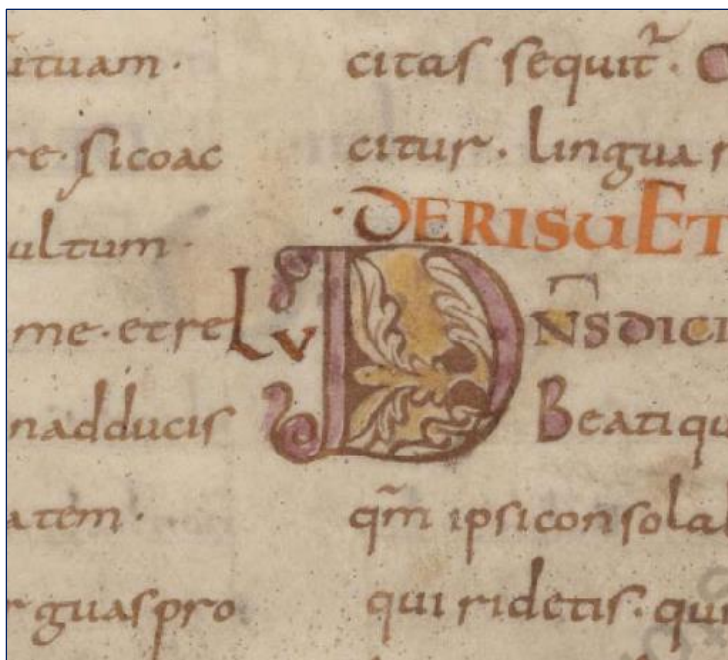 ituam·
re· sicoac
ultum·
me· etre
nadducis
atem·
r guaspro
citas sequit̃·
citur· lingua
·DERISUET
LV
DN̅S̅ DICI
Beatiqu
qm̅ ipsiconsola
qui ridetis· qui